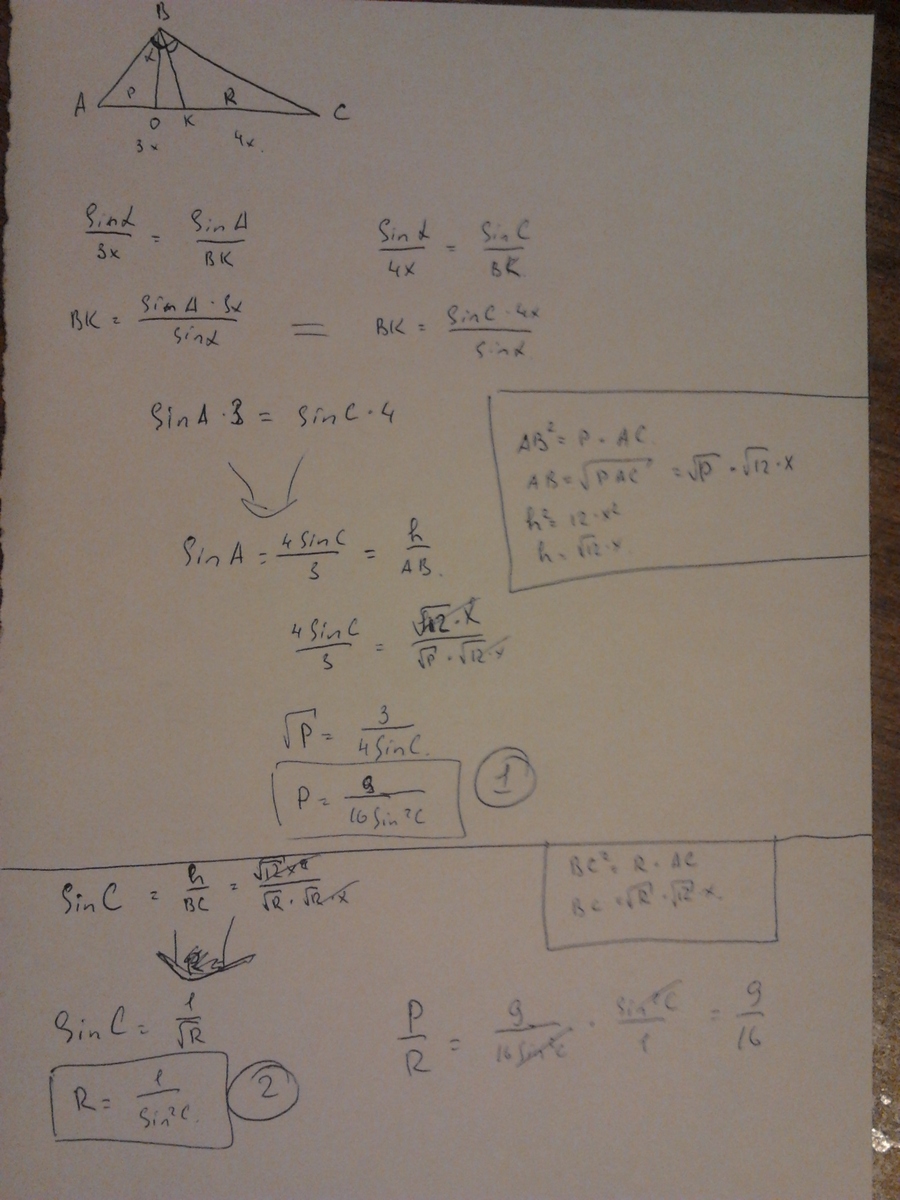 B
α
A P R C
O K
3x 4x.
Sinα/3x = SinA/BK Sinα/4x = SinC/BK
BK = SinA · 3x/Sinα = BK = SinC · 4x/Sinα
SinA · 3 = SinC · 4
AB² = P · AC
AB = √PAC = √P · √12 · x
h² = 12 · x²
h = √12 · x
SinA = 4SinC/3 = h/AB.
4SinC/3 = √12 · x/√P · √12 · x
√P = 3/4SinC.
P = 9/16Sin²C
1
SinC = h/BC = √12 x/√R · √12 · x
BC² = R · AC
BC = √R · √12 x.
SinC = 1/√R
P/R = 9/16Sin²C · Sin²C/1 = 9/16
R = 1/Sin²C.
2